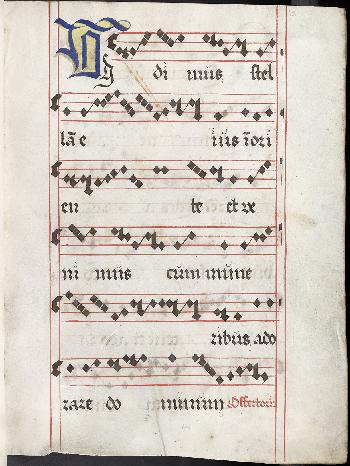 Vi di mus stel
lā e ius ī ori
en te et ve
ni mus cum mune
ribus ado
rare do minum Offertoriū